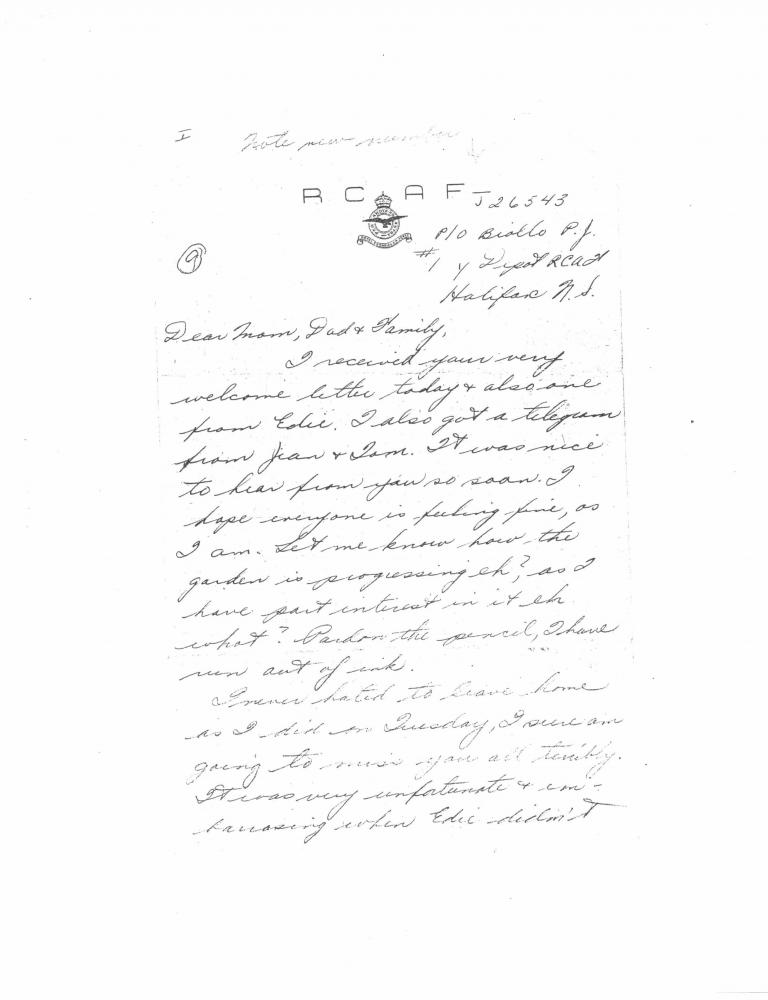 I Note new number
R C A F J26543
P/O Biollo P.J.
#1 Y Depot RCAF
Halifax N.S.
9
Dear Mom, Dad & Family,
I received your very
welcome letter today & also one
from Edie. I also got a telegram
from Jean & Tom. It was nice
to hear from you so soon. I
hope everyone is feeling fine, as
I am. Let me know how the
garden is progessing eh?, as I
have part interest in it eh
what? Pardon the pencil, I have
run out of ink.
I never hated to leave home
as I did on Tuesday, I sure am
going to miss you all terribly.
It was very unfortunate & em-
barrasing when Edie didin't